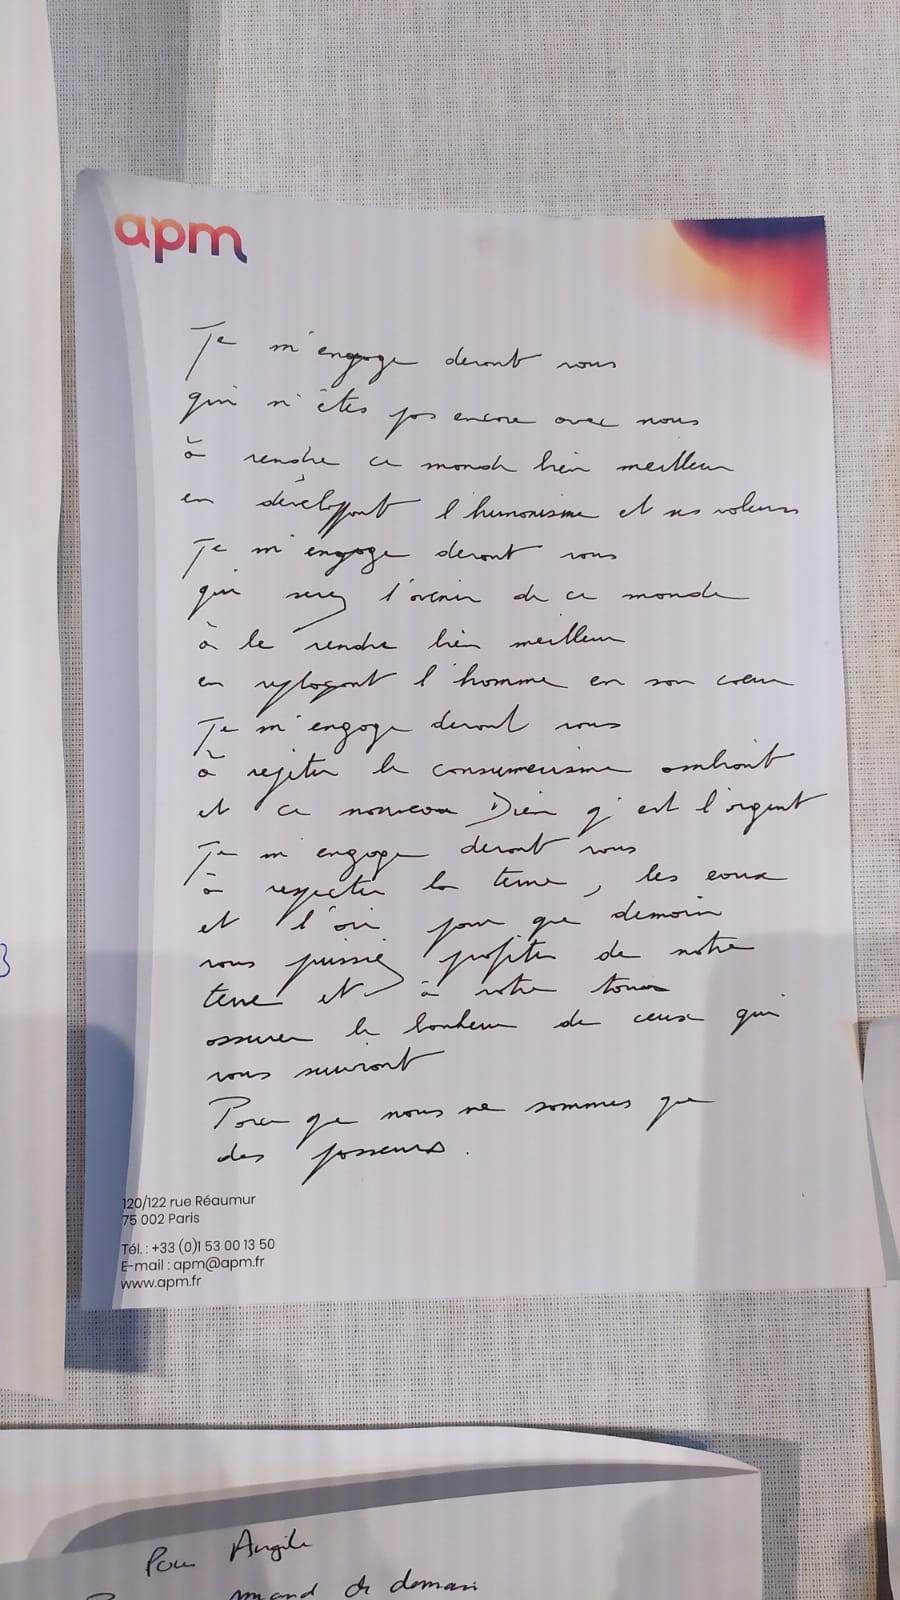 apm
Je m'engage devant vous
qui n'êtes pas encore avec nous
à rendre ce monde bien meilleur
en développant l'humanisme et ses valeurs
Je m'engage devant vous
qui serez l'avenir de ce monde
à le rendre bien meilleur
en replaçant l'homme en son coeur
Je m'engage devant vous
à rejeter le consumerisme ambiant
et ce nouveau Dieu q' est l'argent
Je m'engage devant vous
à respecter la terre, les eaux
et l'air pour que demain
vous puissiez profiter de notre
terre et à votre tour
assurer le bonheur de ceux qui
vous suivront
Parce que nous ne sommes que
des passeurs.
120/122 rue Réaumur
75 002 Paris
Tél. : +33 (0)1 53 00 13 50
E-mail : apm@apm.fr
www.apm.fr
Pour Angèle
de demain